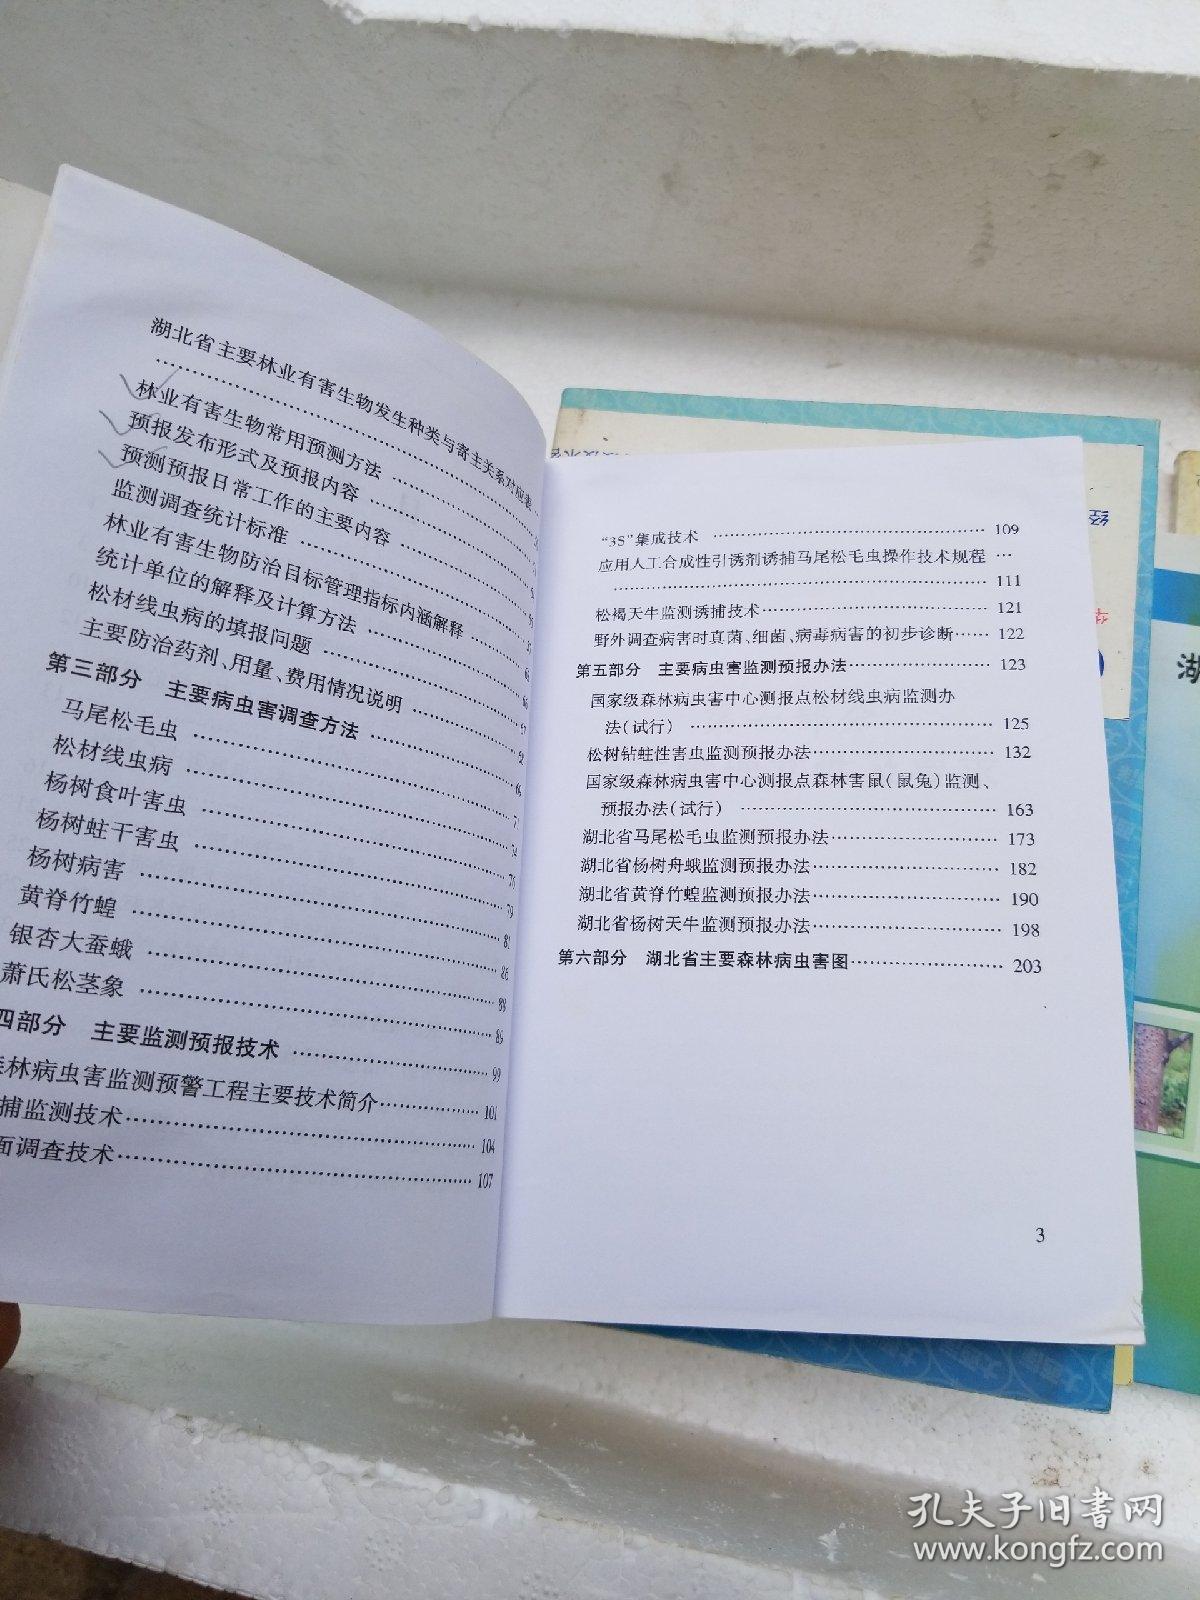 湖北省主要林业有害生物发生种类与寄主关系对应表
林业有害生物常用预测方法
预报发布形式及预报内容
预测预报日常工作的主要内容
监测调查统计标准
林业有害生物防治目标管理指标内涵解释
统计单位的解释及计算方法
松材线虫病的填报问题
主要防治药剂、用量、费用情况说明
第三部分 主要病虫害调查方法
马尾松毛虫
松材线虫病
杨树食叶害虫
杨树蛀干害虫
杨树病害
黄脊竹蝗
银杏大蚕蛾
萧氏松茎象
四部分 主要监测预报技术 99
林病虫害监测预警工程主要技术简介 101
捕监测技术 104
面调查技术 107
“3S”集成技术 109
应用人工合成性引诱剂诱捕马尾松毛虫操作技术规程
111
松褐天牛监测诱捕技术 121
野外调查病害时真菌、细菌、病毒病害的初步诊断 122
第五部分 主要病虫害监测预报办法 123
国家级森林病虫害中心测报点松材线虫病监测办
法(试行) 125
松树钻蛀性害虫监测预报办法 132
国家级森林病虫害中心测报点森林害鼠(鼠兔)监测、
预报办法(试行) 163
湖北省马尾松毛虫监测预报办法 173
湖北省杨树舟蛾监测预报办法 182
湖北省黄脊竹蝗监测预报办法 190
湖北省杨树天牛监测预报办法 198
第六部分 湖北省主要森林病虫害图 203
3
湖
孔夫子旧书网
www.kongfz.com